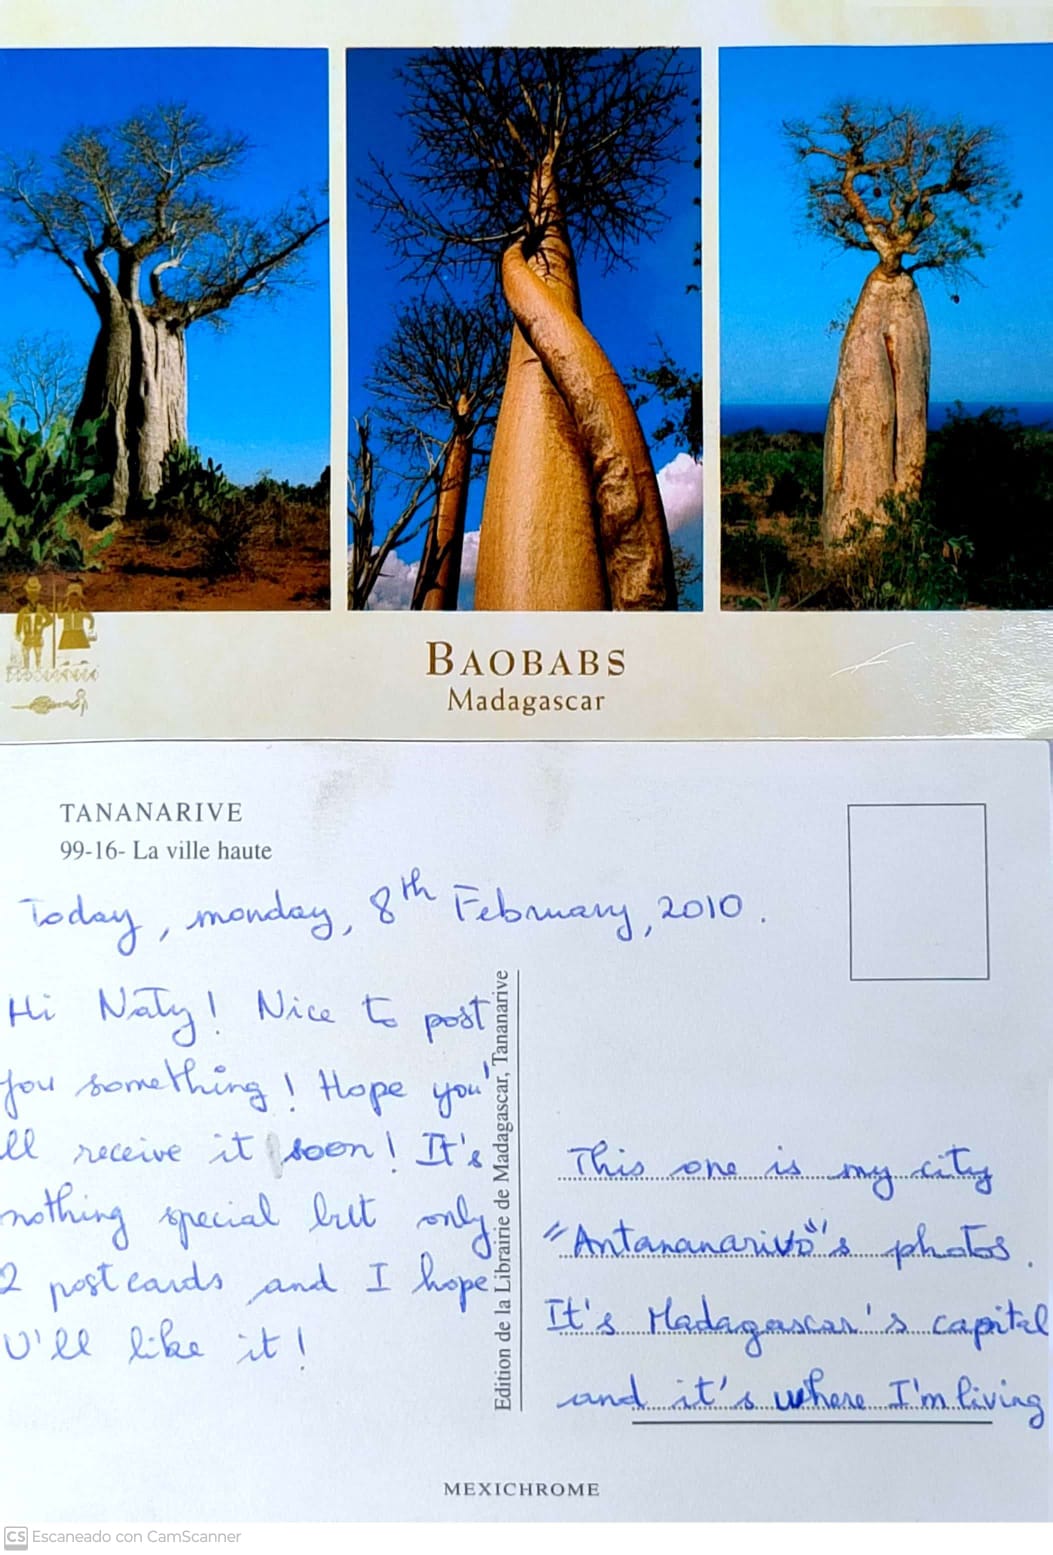 BAOBABS
Madagascar
TANANARIVE
99-16- La ville haute
Today, monday, 8th February, 2010.
Hi Naty! Nice to post
you something! Hope you'
ll receive it soon! It's
nothing special but only
2 postcards and I hope
U'll like it!
Edition de la Librairie de Madagascar, Tananarive
This one is my city
"Antananarivo"'s photos.
It's Madagascar's capital
and it's where I'm living
MEXICHROME
CS Escaneado con CamScanner